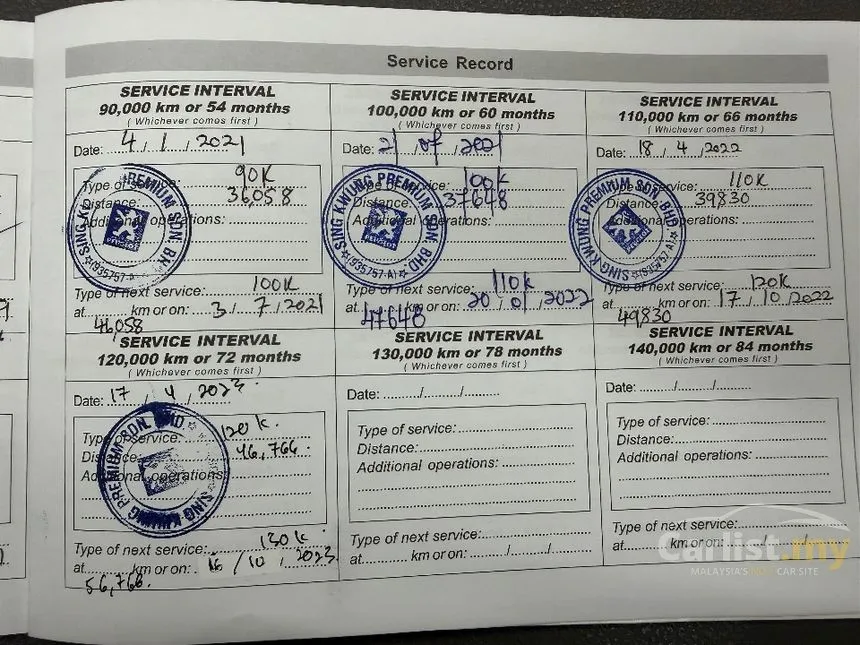 Service Record
SERVICE INTERVAL
90,000 km or 54 months
( Whichever comes first )
Date: 4 / 1 / 2021
Type of service: 90K
Distance: 36,058
Additional operations:
Type of next service: 100K
at 46,058 km or on: 3 / 7 / 2021
SERVICE INTERVAL
100,000 km or 60 months
( Whichever comes first )
Date: 21 / 07 / 2021
Type of service: 100K
Distance: 37648
Additional operations:
SING KWUNG PREMIUM SDN. BHD
(935757-A)
PEUGEOT
Type of next service: 110K
at 47648 km or on: 20 / 01 / 2022
SERVICE INTERVAL
110,000 km or 66 months
( Whichever comes first )
Date: 18 / 4 / 2022
Type of service: 110K
Distance: 39830
Additional operations:
SING KWUNG PREMIUM SDN. BHD
(935757-A)
Type of next service: 120K
at 49830 km or on: 17 / 10 / 2022
SERVICE INTERVAL
120,000 km or 72 months
( Whichever comes first )
Date: 17 / 4 / 2023
Type of service: 120K.
Distance: 46,766
Additional operations:
SING KWUNG PREMIUM SDN. BHD
Type of next service: 130K
at 56,766 km or on: 16 / 10 / 2023
SERVICE INTERVAL
130,000 km or 78 months
( Whichever comes first )
Date:....../....../.........
Type of service:
Distance:
Additional operations:
Type of next service:
at........ km or on:....../....../.........
SERVICE INTERVAL
140,000 km or 84 months
( Whichever comes first )
Date:....../....../.........
Type of service:
Distance:
Additional operations:
Type of next service:
at........ km or on:....../....../
Carlist.my
MALAYSIA'S NO.1 CAR SITE